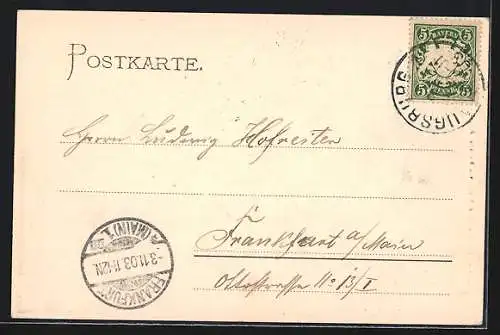 POSTKARTE.
BAYERN
5 5
5 PFENNIG 5
AUGSBURG
Herrn Ludwig Hofreiter
Frankfurt a/Main
Ottostrasse No 13/I
FRANKFURT
3.11.03. 11-12N.
(MAIN) 1.